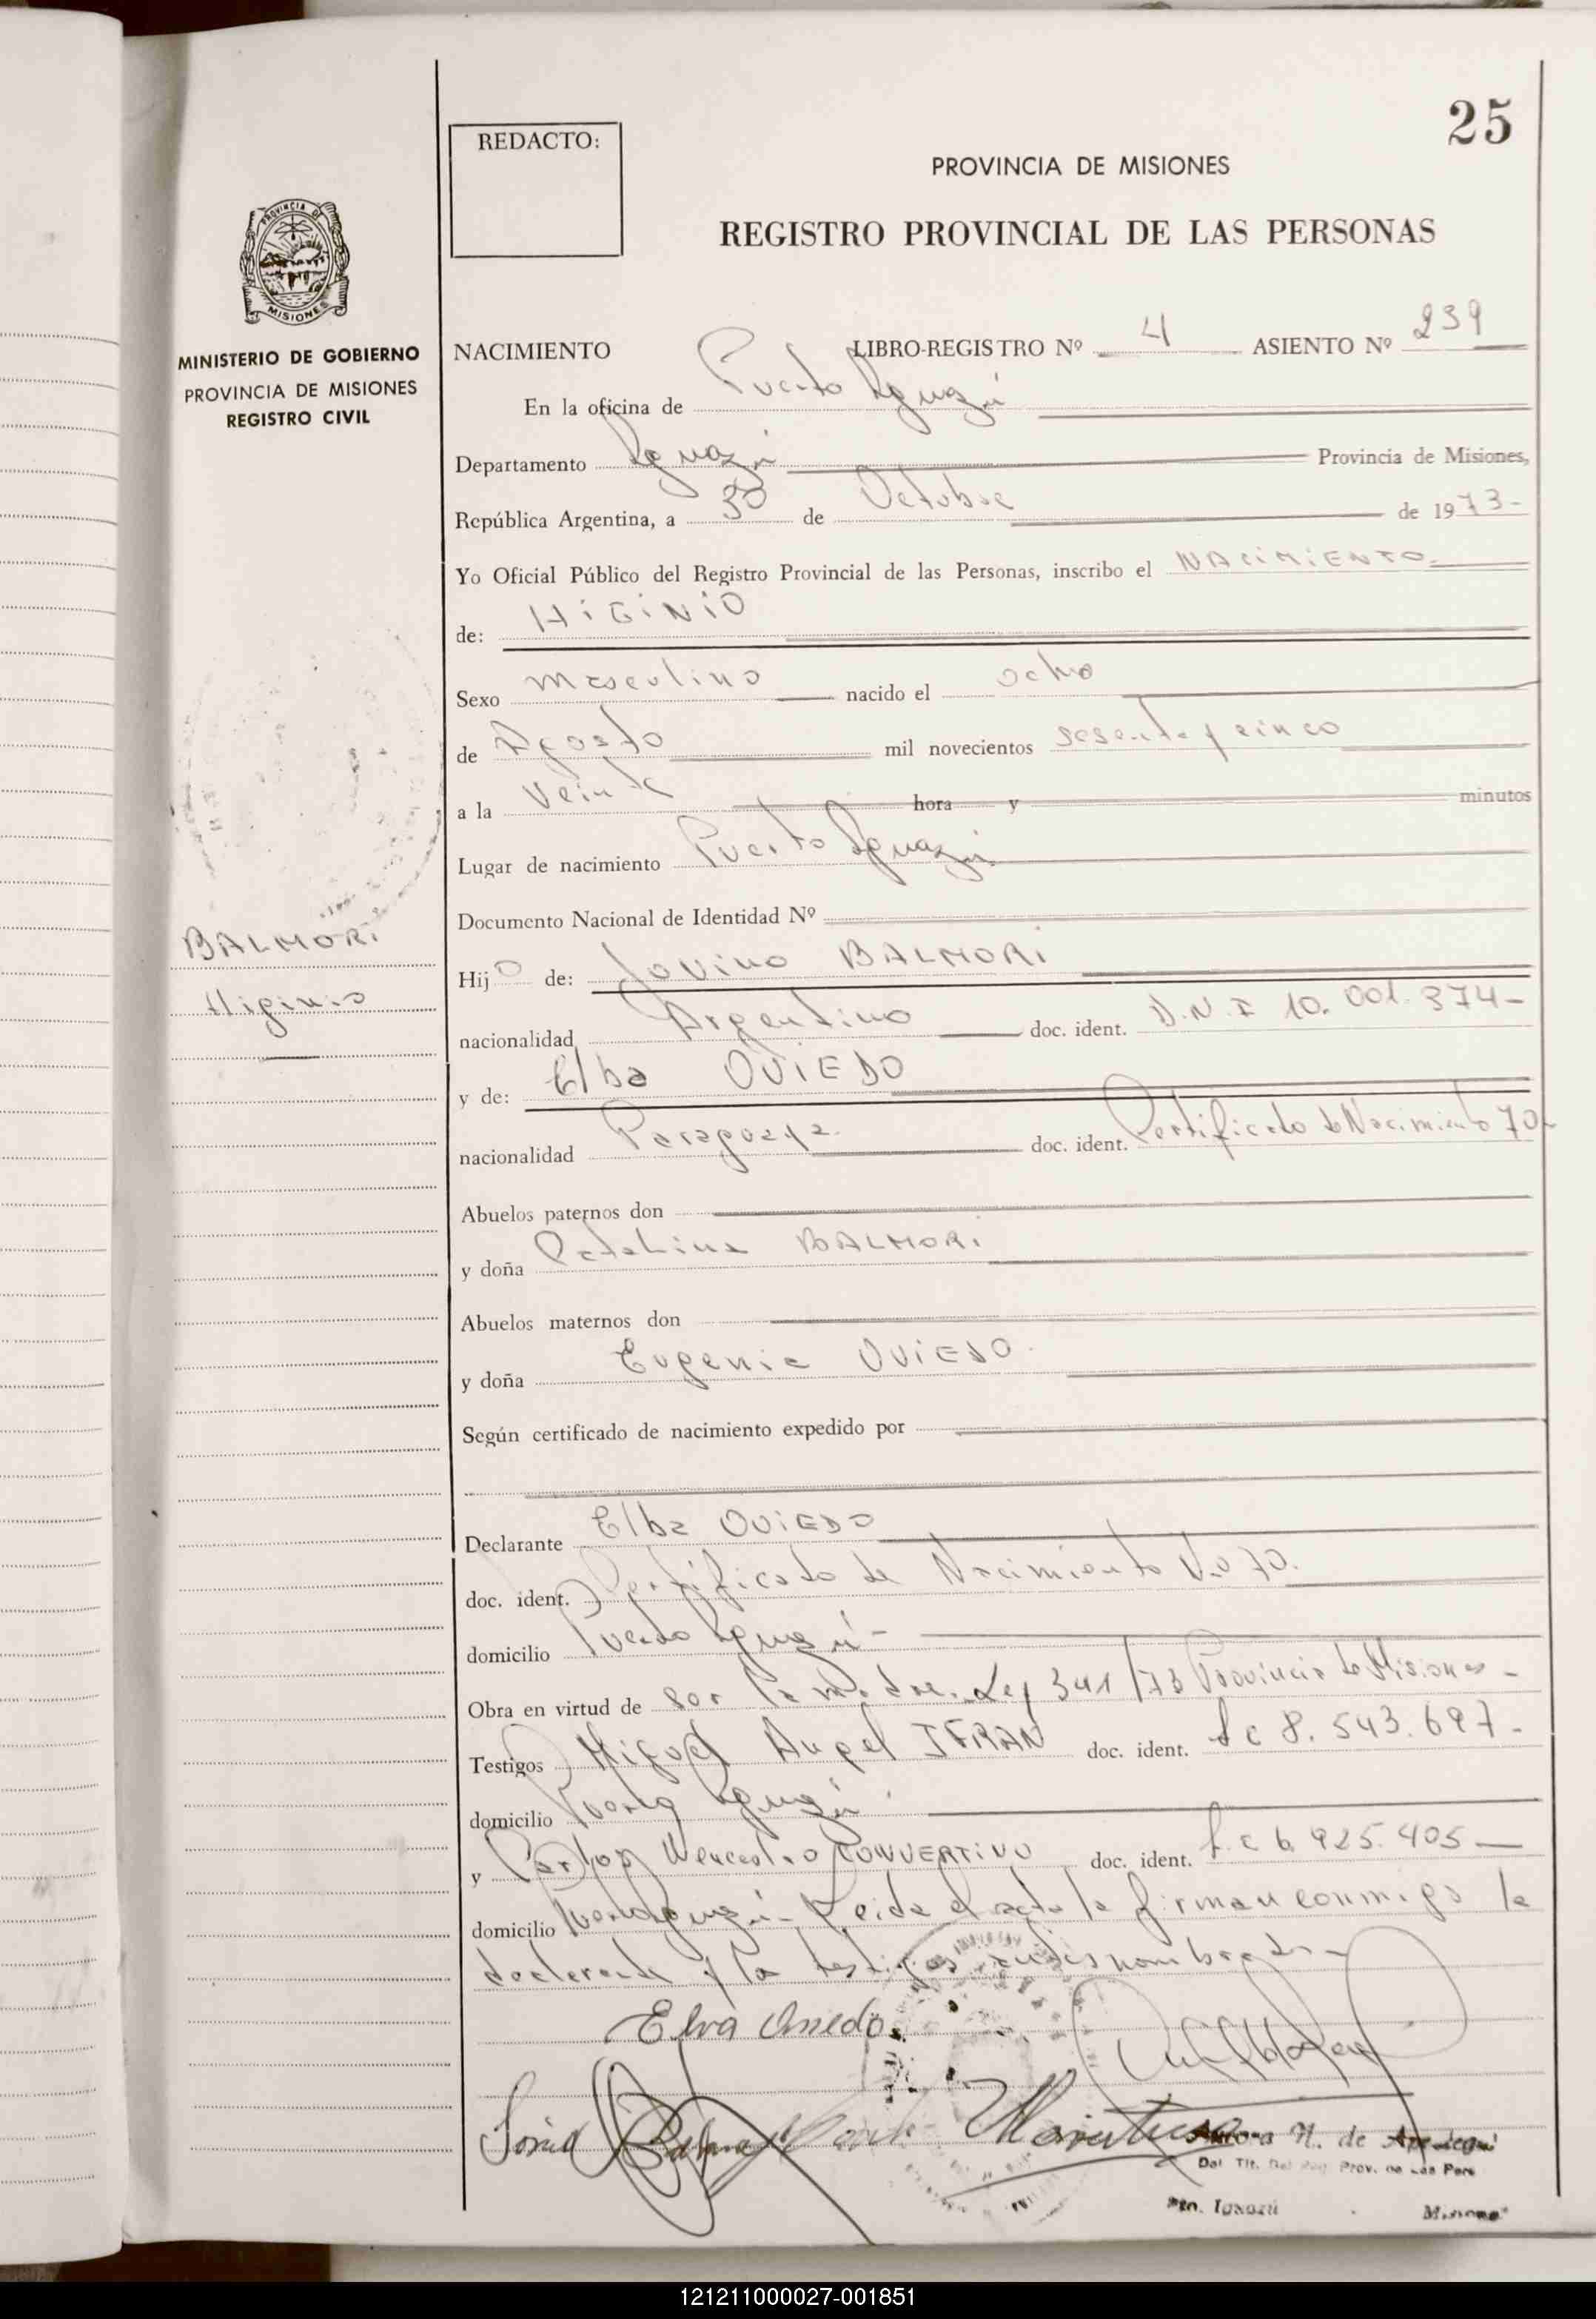 25
REDACTO:
PROVINCIA DE MISIONES
REGISTRO PROVINCIAL DE LAS PERSONAS
PROVINCIA DE
MISIONES
MINISTERIO DE GOBIERNO
PROVINCIA DE MISIONES
REGISTRO CIVIL
NACIMIENTO LIBRO-REGISTRO Nº 4 ASIENTO Nº 239
En la oficina de Puerto Iguazú
Departamento Iguazú Provincia de Misiones,
República Argentina, a 30 de Octubre de 1973-
Yo Oficial Público del Registro Provincial de las Personas, inscribo el NACIMIENTO
de: HIGINIO
Sexo masculino nacido el ocho
de Agosto mil novecientos sesenta y cinco
a la Veinte hora y minutos
Lugar de nacimiento Puerto Iguazú
Documento Nacional de Identidad Nº
BALMORI
Higinio
Hijo de: Jovino BALMORI
nacionalidad Argentino doc. ident. D.N.I 10.001.374-
y de: Elba OVIEDO
nacionalidad Paraguaya doc. ident. Certificado de Nacimiento 70-
Abuelos paternos don
y doña Catalina BALMORI
Abuelos maternos don
y doña Eugenia OVIEDO.
Según certificado de nacimiento expedido por
Declarante Elba OVIEDO
doc. ident. Certificado de Nacimiento No 70.
domicilio Puerto Iguazú-
Obra en virtud de ser la madre. Ley 341/73 Provincia de Misiones-
Testigos Miguel Angel IFRAN doc. ident. L c 8.543.697-
domicilio Puerto Iguazú
y Carlos Wenceslao CONVERTINO doc. ident. L.c 6.925.405-
domicilio Puerto Iguazú- Leida el acta la firman conmigo la
declarante y los testigos antes nombrados-
Elva Oviedo
Sonia
N. de
Del. Tit. Del Reg. Prov. de Las Pers
Pto. Iguazú Misiones
121211000027-001851